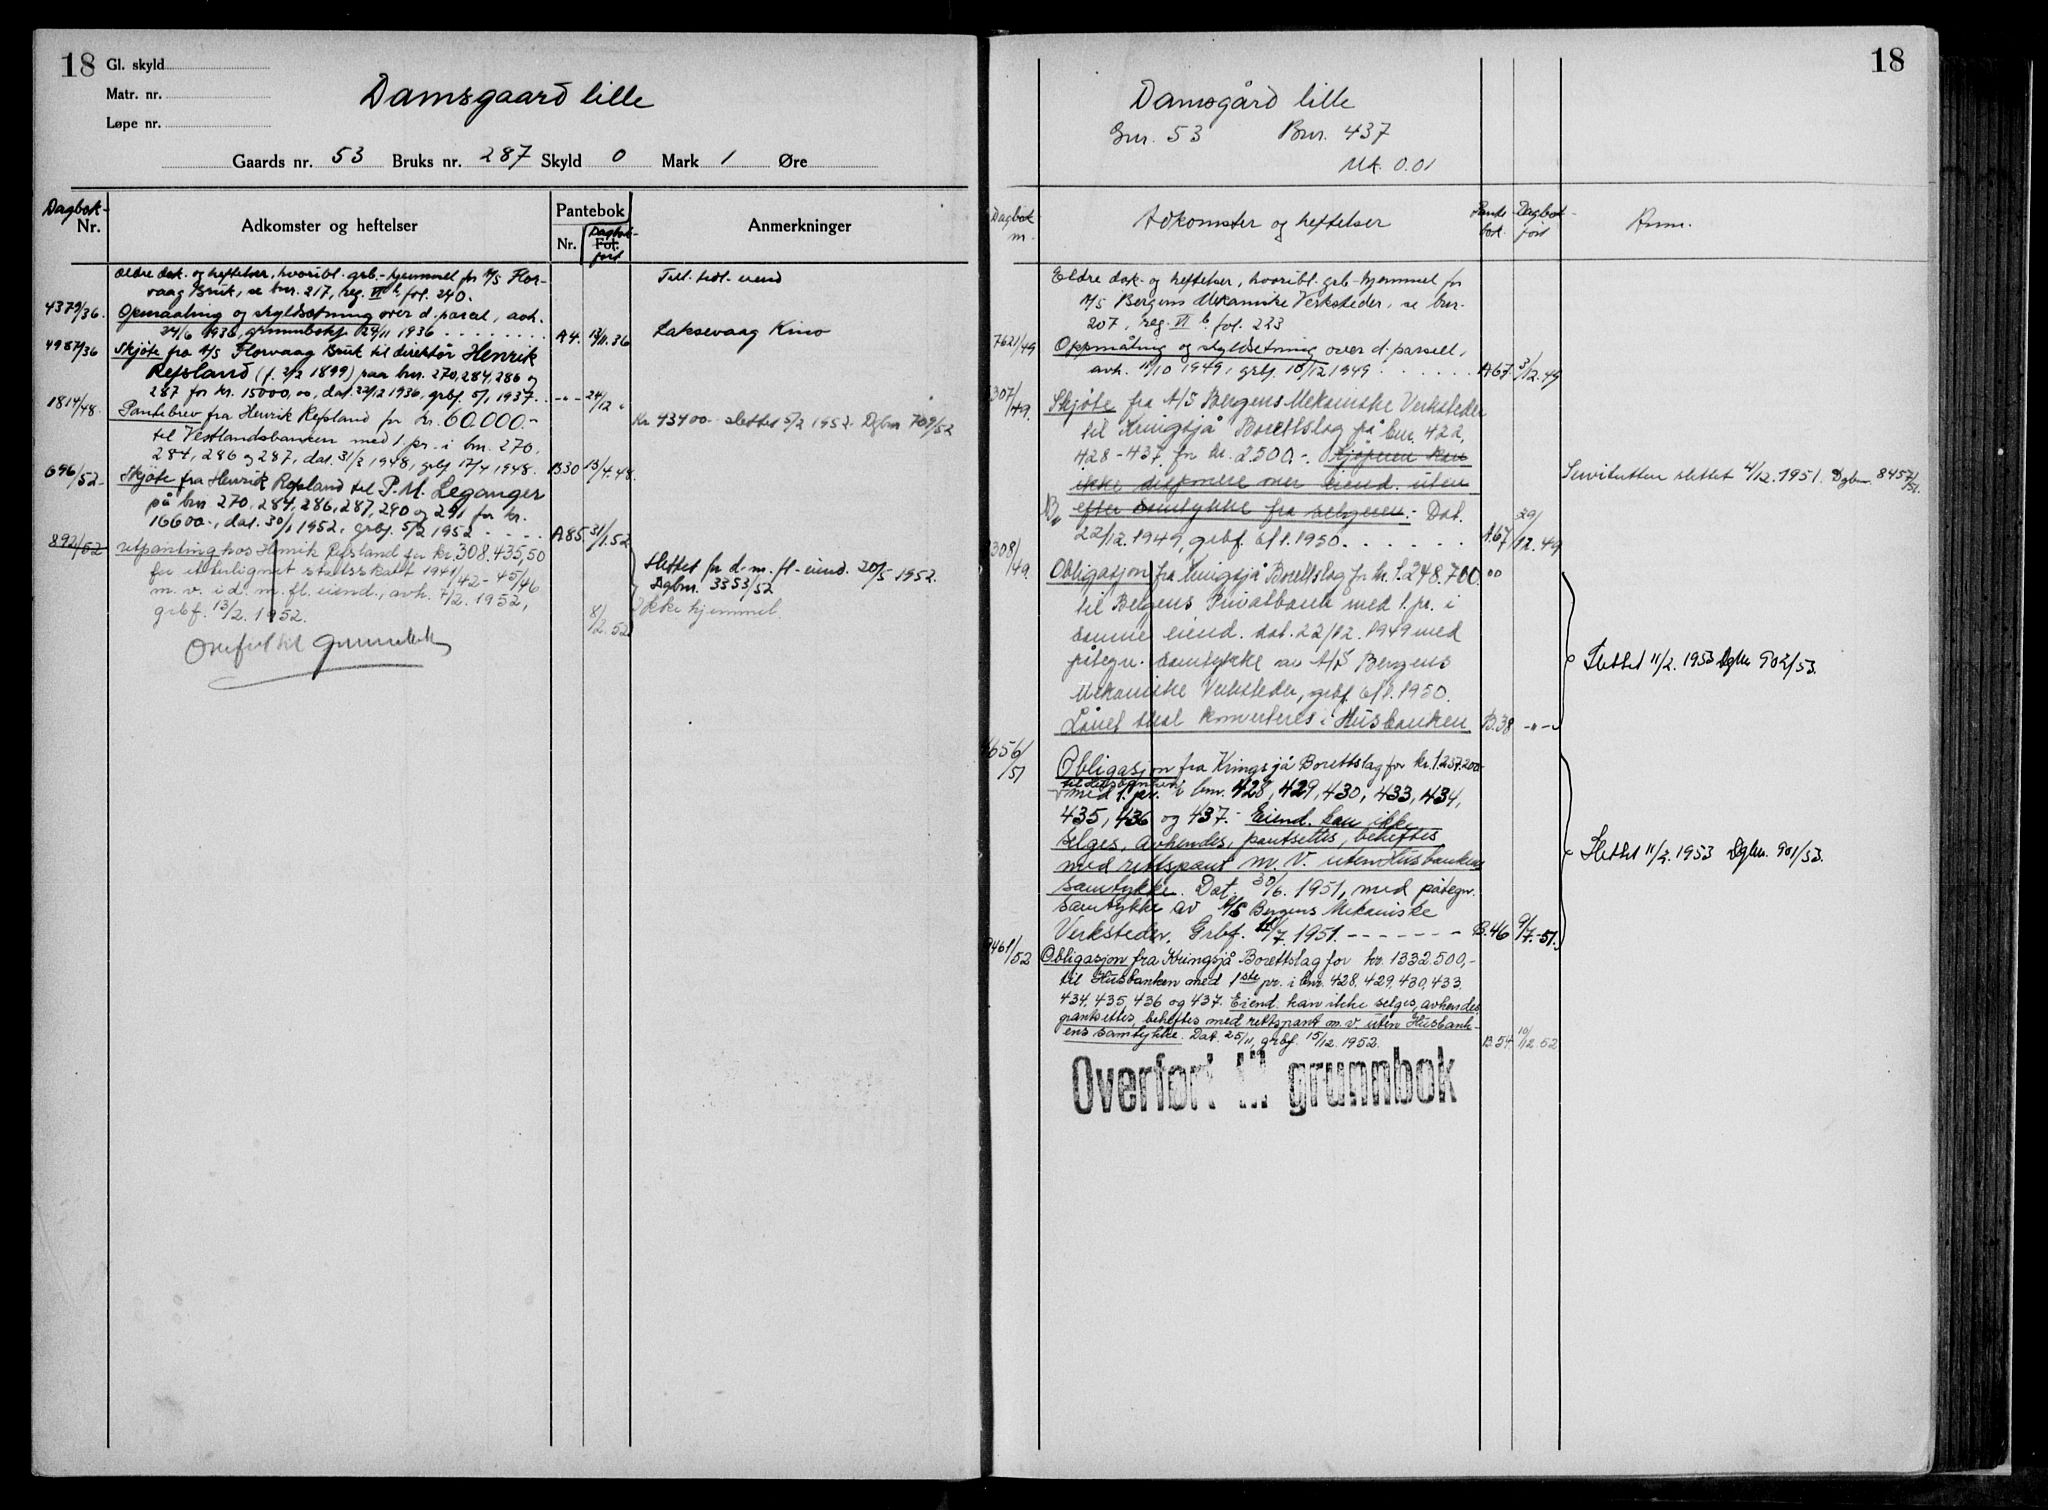 18
Gl. skyld
Matr. nr.
Løpe nr.
Damsgaard lille
Gaards nr. 53 Bruks nr. 287 Skyld 0 Mark 1 Øre
Dagbok-
Nr.
Adkomster og heftelser
Pantebok
Nr.
Fol.
Dagbok-
ført
Anmerkninger
Ældre dok. og heftelser, hvoribl. grb.-hjemmel for A/S Flor-
vaag Bruk, se bnr. 217, reg. VI b, fol. 240.
Till. tidl. eiend
4379/36. Opmaaling og skyldsetning over d. parcel, avh.
24/6 1936, grunnbokf. 24/11 1936 A4. 13/11.36
Laksevaag Kino
4987/36 Skjøte fra A/S Florvaag Bruk til direktør Henrik
Refsland (f. 2/2 1899) paa bnr. 270, 284, 286 og
287 for kr. 15000,00, dat. 22/12 1936, grbf. 5/1 1937. -"- 24/12 "
1814/48. Pantebrev fra Henrik Refsland for kr. 60.000.-
til Vestlandsbanken med 1. pr. i bnr. 270,
284, 286 og 287, dat. 31/3 1948, grbf. 17/4 1948. B30 13/4.48.
Kr 43400.- slettet 5/2 1952. Dgbnr 709/52
696/52- Skjøte fra Henrik Refsland til P. M. Leganger
på bnr. 270, 284, 286, 287, 290 og 291 for kr.
16600.-, dat. 30/1 1952, grbf. 5/2 1952 A85. 31/1.52
892/52 Utpanting hos Henrik Refsland for kr. 308.435,50
for etterlignet statsskatt 1941/42 - 45/46
m. v. i d. m. fl. eiend., avh. 7/2. 1952,
grbf. 13/2. 1952. 8/2.52
Slettet for d. m. fl. eiend. 20/5 1952.
Dgbnr. 3353/52
Ikke hjemmel.
Overført til grunnbok
18
Damsgård lille
Gnr. 53 Bnr. 437
Mk. 0.01
Dagbok
nr.
Adkomster og heftelser
Pante
bok.
Dagbok-
ført
Anm.
Eldre dok. og heftelser, hvoribl. grb-hjemmel for
A/S Bergens Mekaniske Verksteder, se bnr.
207, reg. VI b. fol. 223
7621/49 Oppmåling og skyldsetning over d. parsell,
avh. 11/10 1949, grbf. 10/12 1949 A67 3/12.49
307/49. Skjøte fra A/S Bergens Mekaniske Verksteder
til Kringsjå Borettslag på bnr. 422,
428-437 for kr. 2500.-. Kjøperen kan
ikke disponere over eiend. uten
efter samtykke fra selgeren.- Dat.
22/12. 1949, grbf. 6/1. 1950. A67 29/12.49
Servitutten slettet 4/12.1951. Dgbnr. 8457/51.
308/49. Obligasjon fra Kringsjå Borettslag for kr. 1.248.700
til Bergens Privatbank med 1. pr. i
samme eiend. dat. 22/12. 1949 med
påtegn. samtykke av A/S Bergens
Mekaniske Verksteder, grbf. 6/1. 1950.
Lånet skal konverteres i Husbanken B.38 -"-
Slettet 11/2. 1953 Dgbnr 902/53.
656/51 Obligasjon fra Kringsjå Borettslag for kr. 1.257.200
med 1. pr. i bnr. 428, 429, 430, 433, 434,
435, 436 og 437.- Eiend. kan ikke
selges, avhendes, pantsettes, beheftes
med rettspant m. v. uten Husbankens
samtykke. Dat. 30/6. 1951, med påtegn.
samtykke av A/S Bergens Mekaniske
Verksteder. Grbf. 11/7. 1951. B.46 9/7.-51.
Slettet 11/2. 1953 Dgbnr. 901/53.
9461/52 Obligasjon fra Kringsjå Borettslag for kr. 1332.500,-
til Husbanken med 1ste pr. i bnr. 428, 429, 430, 433,
434, 435, 436 og 437. Eiend. kan ikke selges, avhendes,
pantsettes, beheftes med rettspant m. v. uten Husbank-
ens samtykke. Dat. 25/11, grbf. 15/12 1952. B.54 10/12.52
Overført til grunnbok